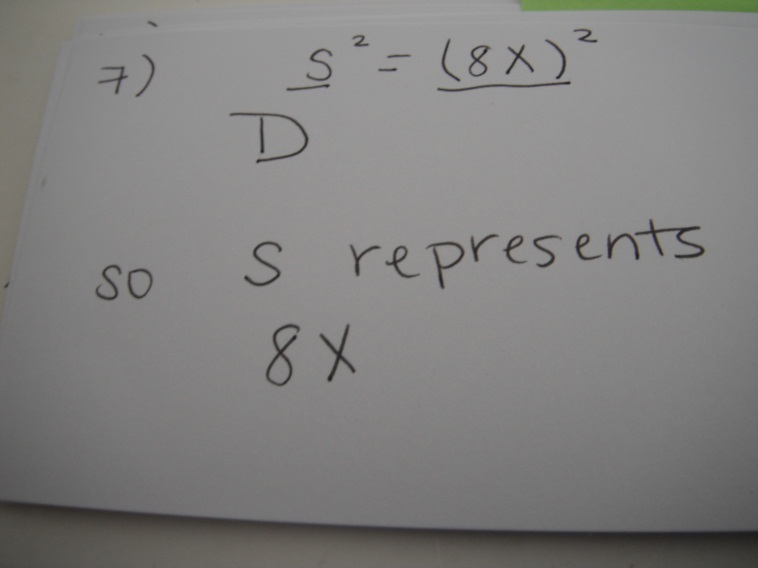 7) S² = (8X)²
D
so S represents
8X